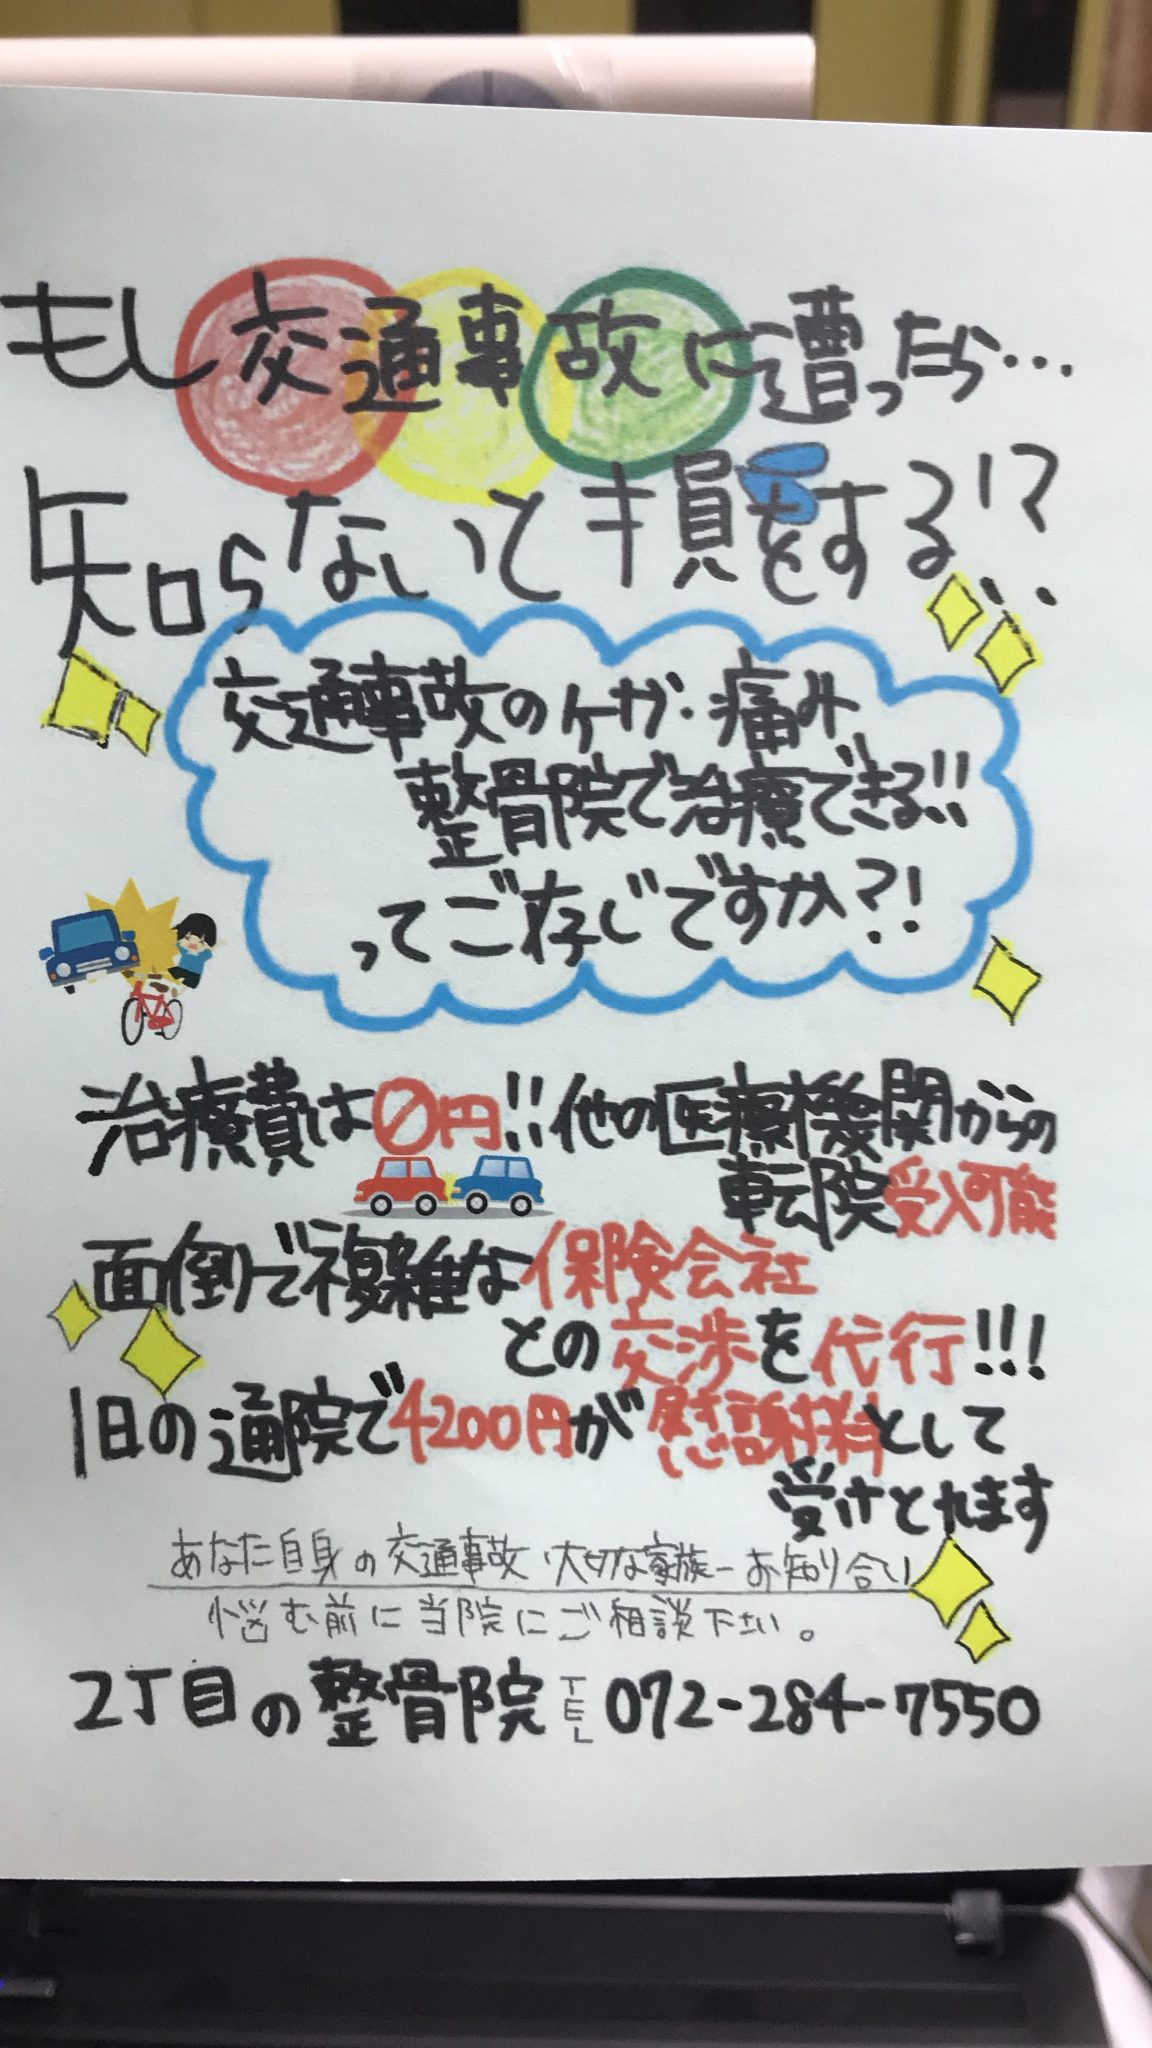 もし交通事故に遭ったら…
知らないと損をする!?
交通事故のケガ・痛み
整骨院で治療できる!!
ってご存じですか?!
治療費は0円!!他の医療機関からの
転院受入可能
面倒で複雑な保険会社
との交渉を代行!!!
1日の通院で4200円が慰謝料として
受けとれます
あなた自身の交通事故・大切な家族-お知り合い
悩む前に当院にご相談下さい。
2丁目の整骨院 TEL 072-284-7550